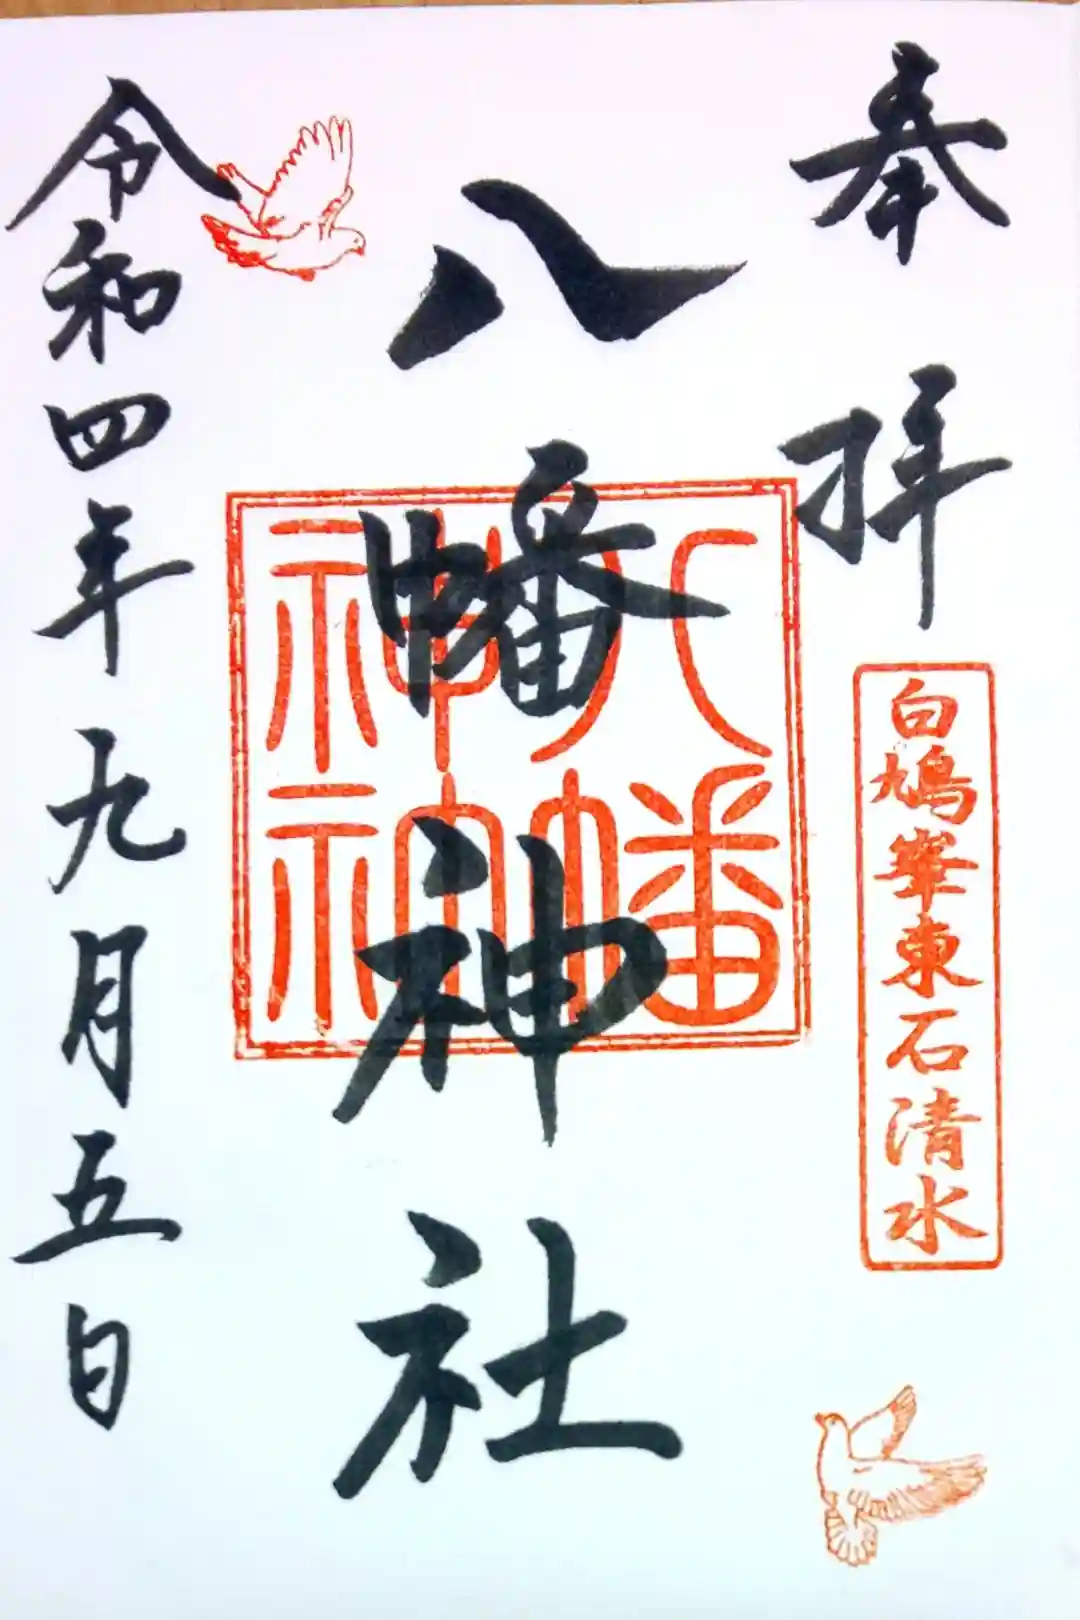 奉拝
白鳩峯東石清水
八幡神社
八幡
神社
令和四年九月五日